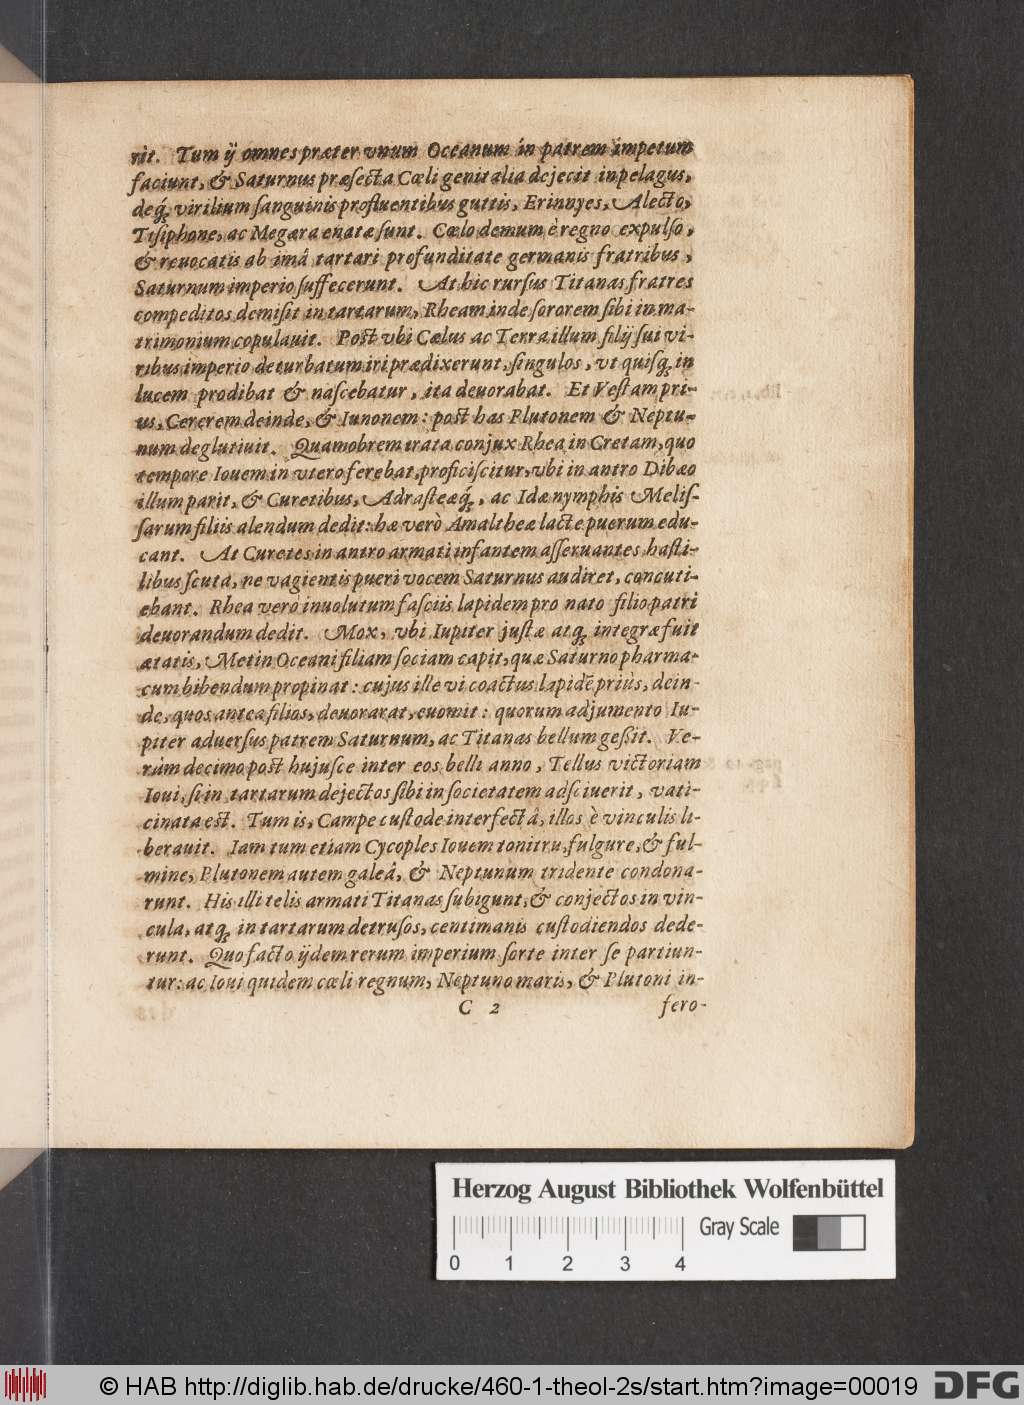 rit. Tum ij omnes præter vnum Oceanum in patrem impetum
faciunt, & Saturnus præsecta Cœli genitalia dejecit in pelagus,
deq́; virilium sanguinis profluentibus guttis, Erinnyes, Alecto,
Tisiphone, ac Megæra enatæ sunt. Cœlo demum è regno expulso,
& reuocatis ab imâ tartari profunditate germanis fratribus,
Saturnum imperio suffecerunt. At hic rursus Titanas fratres
compeditos demisit in tartarum, Rheam inde sororem sibi in ma-
trimonium copulauit. Post vbi Cœlus ac Terra illum filij sui vi-
ribus imperio deturbatum iri prædixerunt, singulos, vt quisq; in
lucem prodibat & nascebatur, ita deuorabat. Et Vestam pri-
us, Cererem deinde, & Iunonem: post has Plutonem & Neptu-
num deglutiuit. Quamobrem irata conjux Rhea in Cretam, quo
tempore Iouem in vtero ferebat, proficiscitur, vbi in antro Dibæo
illum parit, & Curetibus, Adrasteæq́;, ac Idæ nymphis Melis-
sarum filiis alendum dedit: hæ verò Amaltheæ lacte puerum edu-
cant. At Curetes in antro armati infantem asseruantes hasti-
libus scuta, ne vagientis pueri vocem Saturnus audiret, concuti-
ebant. Rhea verò inuolutum fasciis lapidem pro nato filio patri
deuorandum dedit. Mox, vbi Iupiter justæ atq; integræ fuit
ætatis, Metin Oceani filiam sociam capit, quæ Saturno pharma-
cum bibendum propinat: cujus ille vi coactus lapidẽ priùs, dein-
de, quos antea filios, deuorarat, euomit: quorum adjumento Iu-
piter aduersus patrem Saturnum, ac Titanas bellum gessit. Ve-
rùm decimo post hujusce inter eos belli anno, Tellus victoriam
Ioui, si in tartarum dejectos sibi in societatem adsciuerit, vati-
cinata est. Tum is, Campe custode interfectâ, illos è vinculis li-
berauit. Iam tum etiam Cycoples Iouem tonitru, fulgure, & ful-
mine, Plutonem autem galeâ, & Neptunum tridente condona-
runt. His illi telis armati Titanas subigunt, & conjectos in vin-
cula, atq; in tartarum detrusos, centimanis custodiendos dede-
runt. Quo facto ijdem rerum imperium sorte inter se partiun-
tur: ac Ioui quidem cœli regnum, Neptuno maris, & Plutoni in-
C 2 fero-
Herzog August Bibliothek Wolfenbüttel
Gray Scale
0 1 2 3 4
© HAB http://diglib.hab.de/drucke/460-1-theol-2s/start.htm?image=00019 DFG